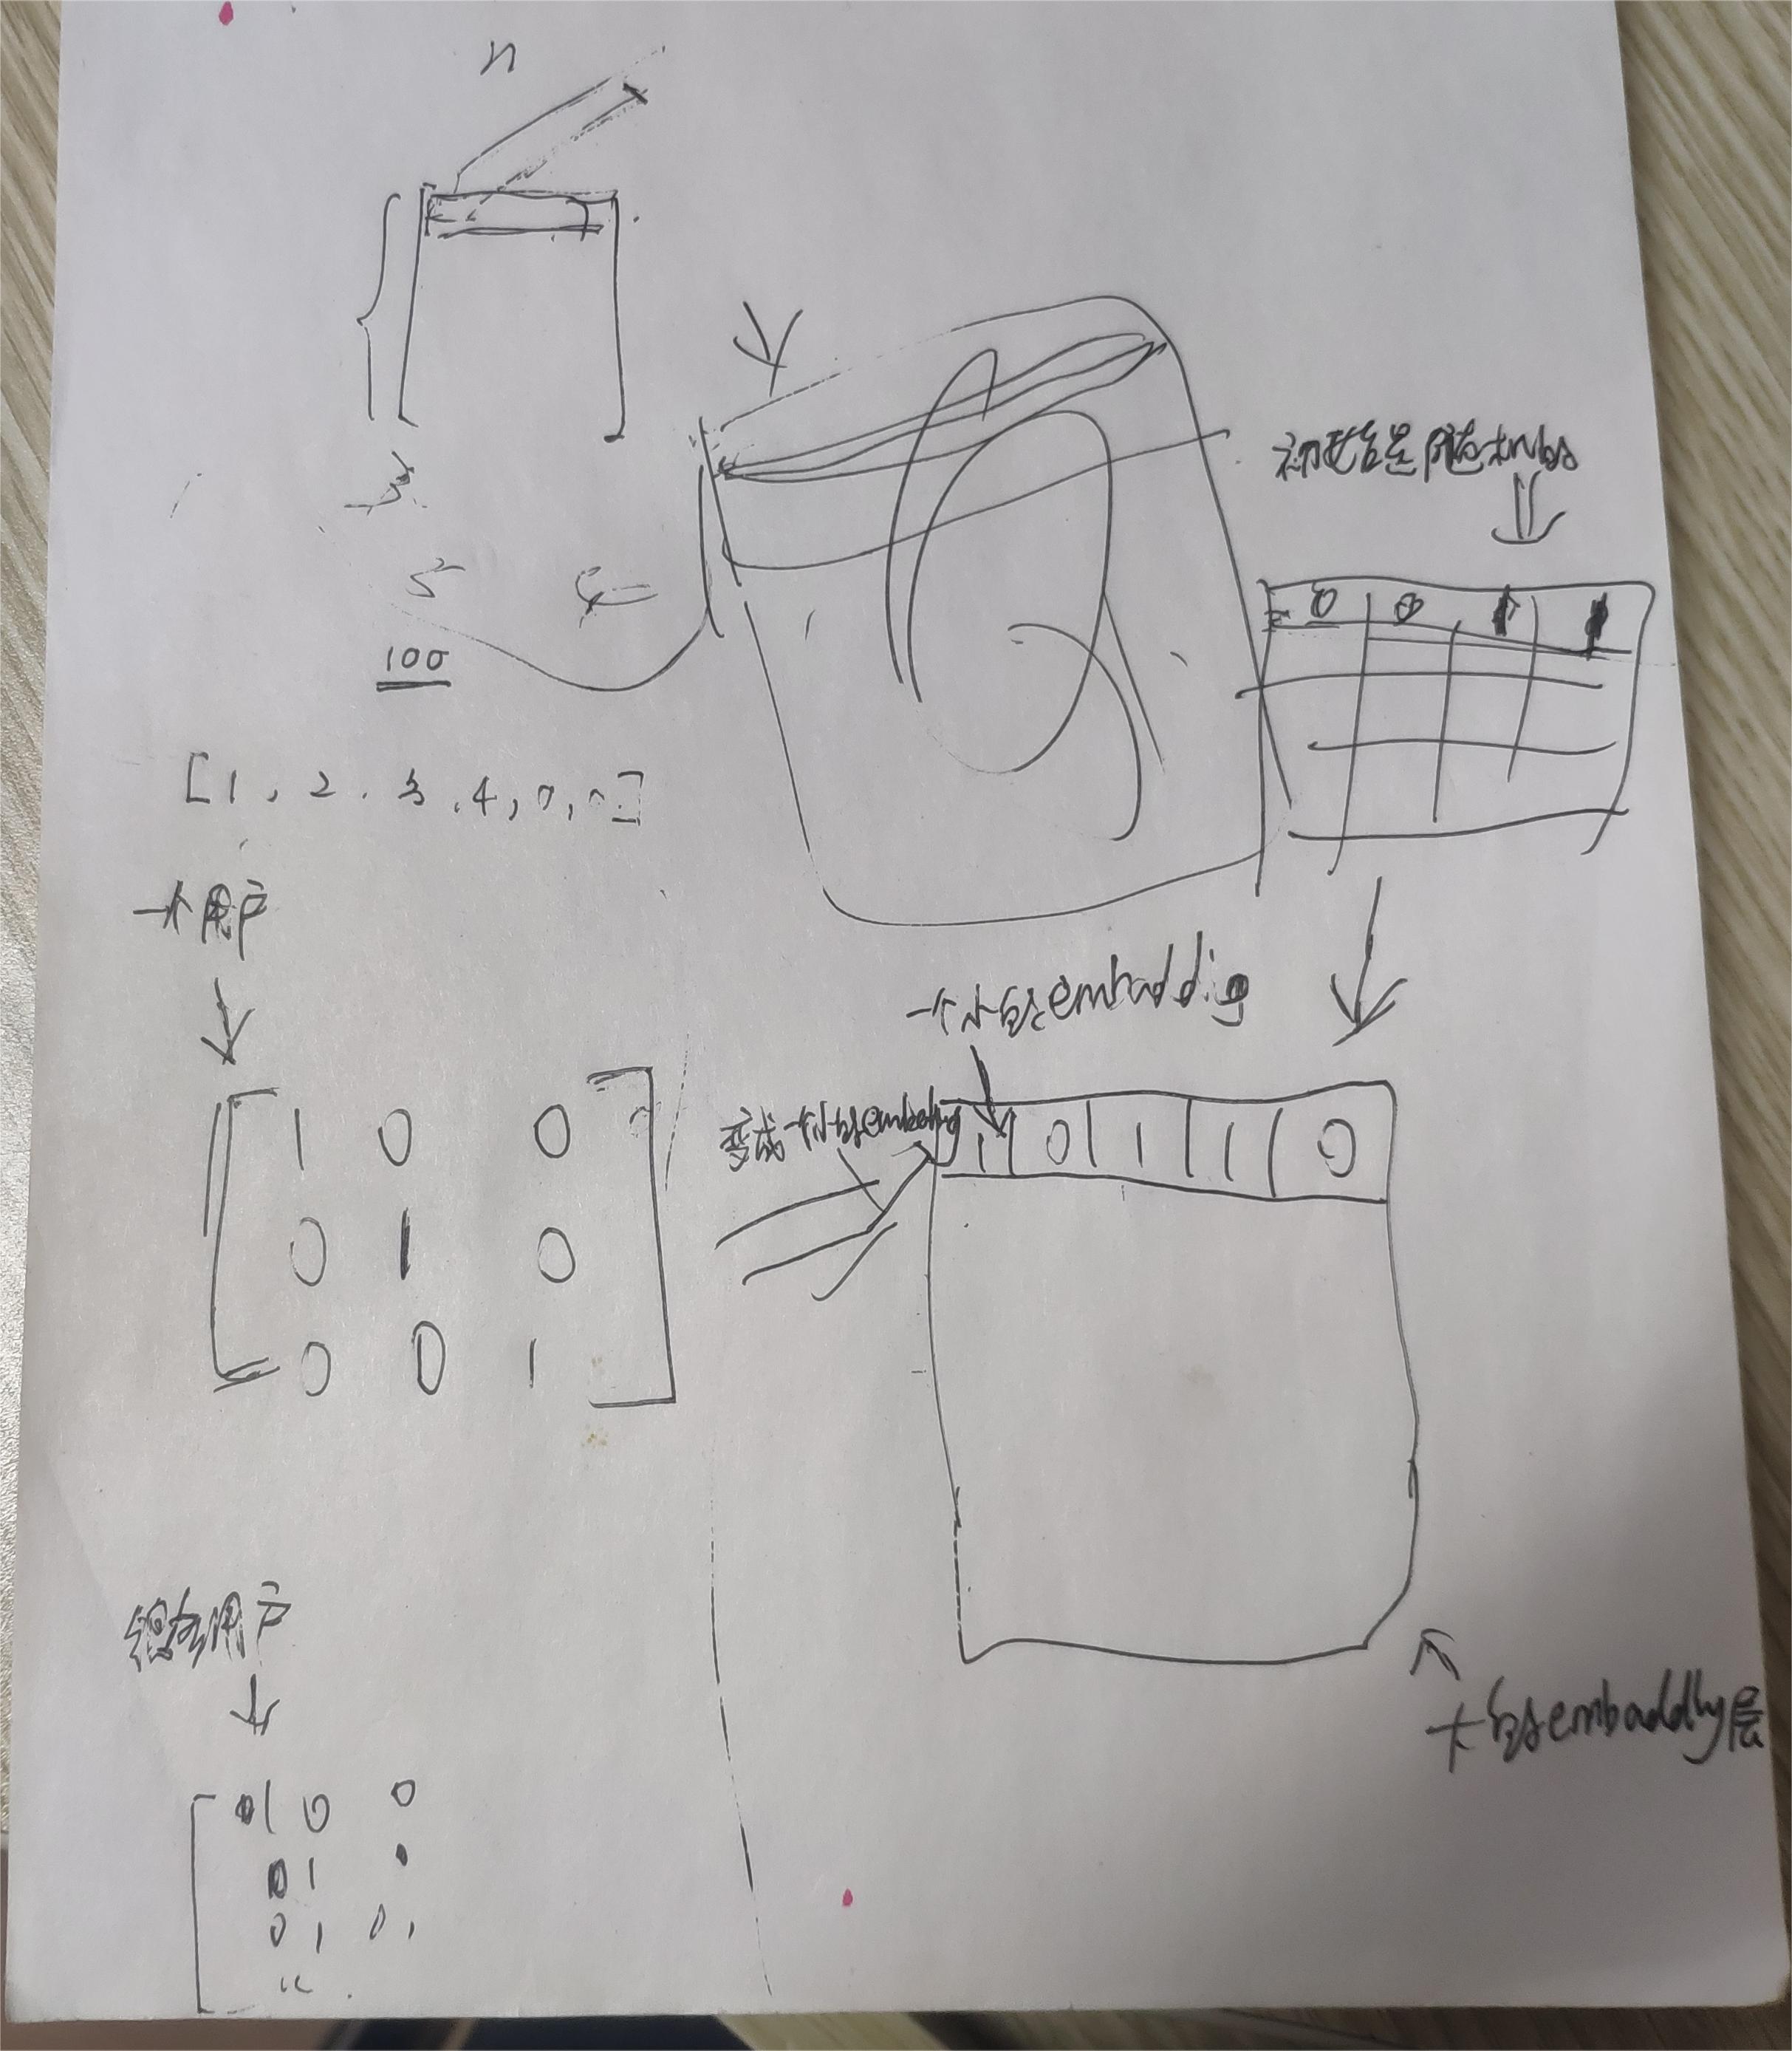 n
3
5
100
[1, 2, 3, 4, 0, 0]
初始是随机的
0 0 1 1
一个用户
1 0 0
0 1 0
0 0 1
一个小的embaddig
变成一个小的embeding
1 0 1 1 0
大的embadding层
很多用户
1 0 0
0 1 0
0 1 0 1